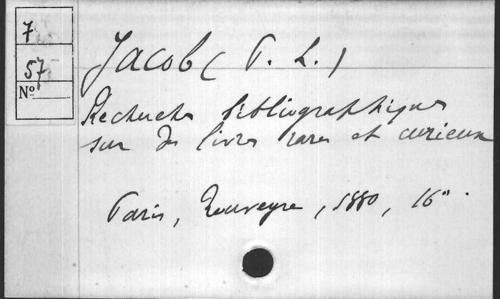 7
57
No
Jacob (P. L.)
Recherches bibliographiques
sur des livres rares et curieux
Paris, Rouveyre, 1880, 16°.